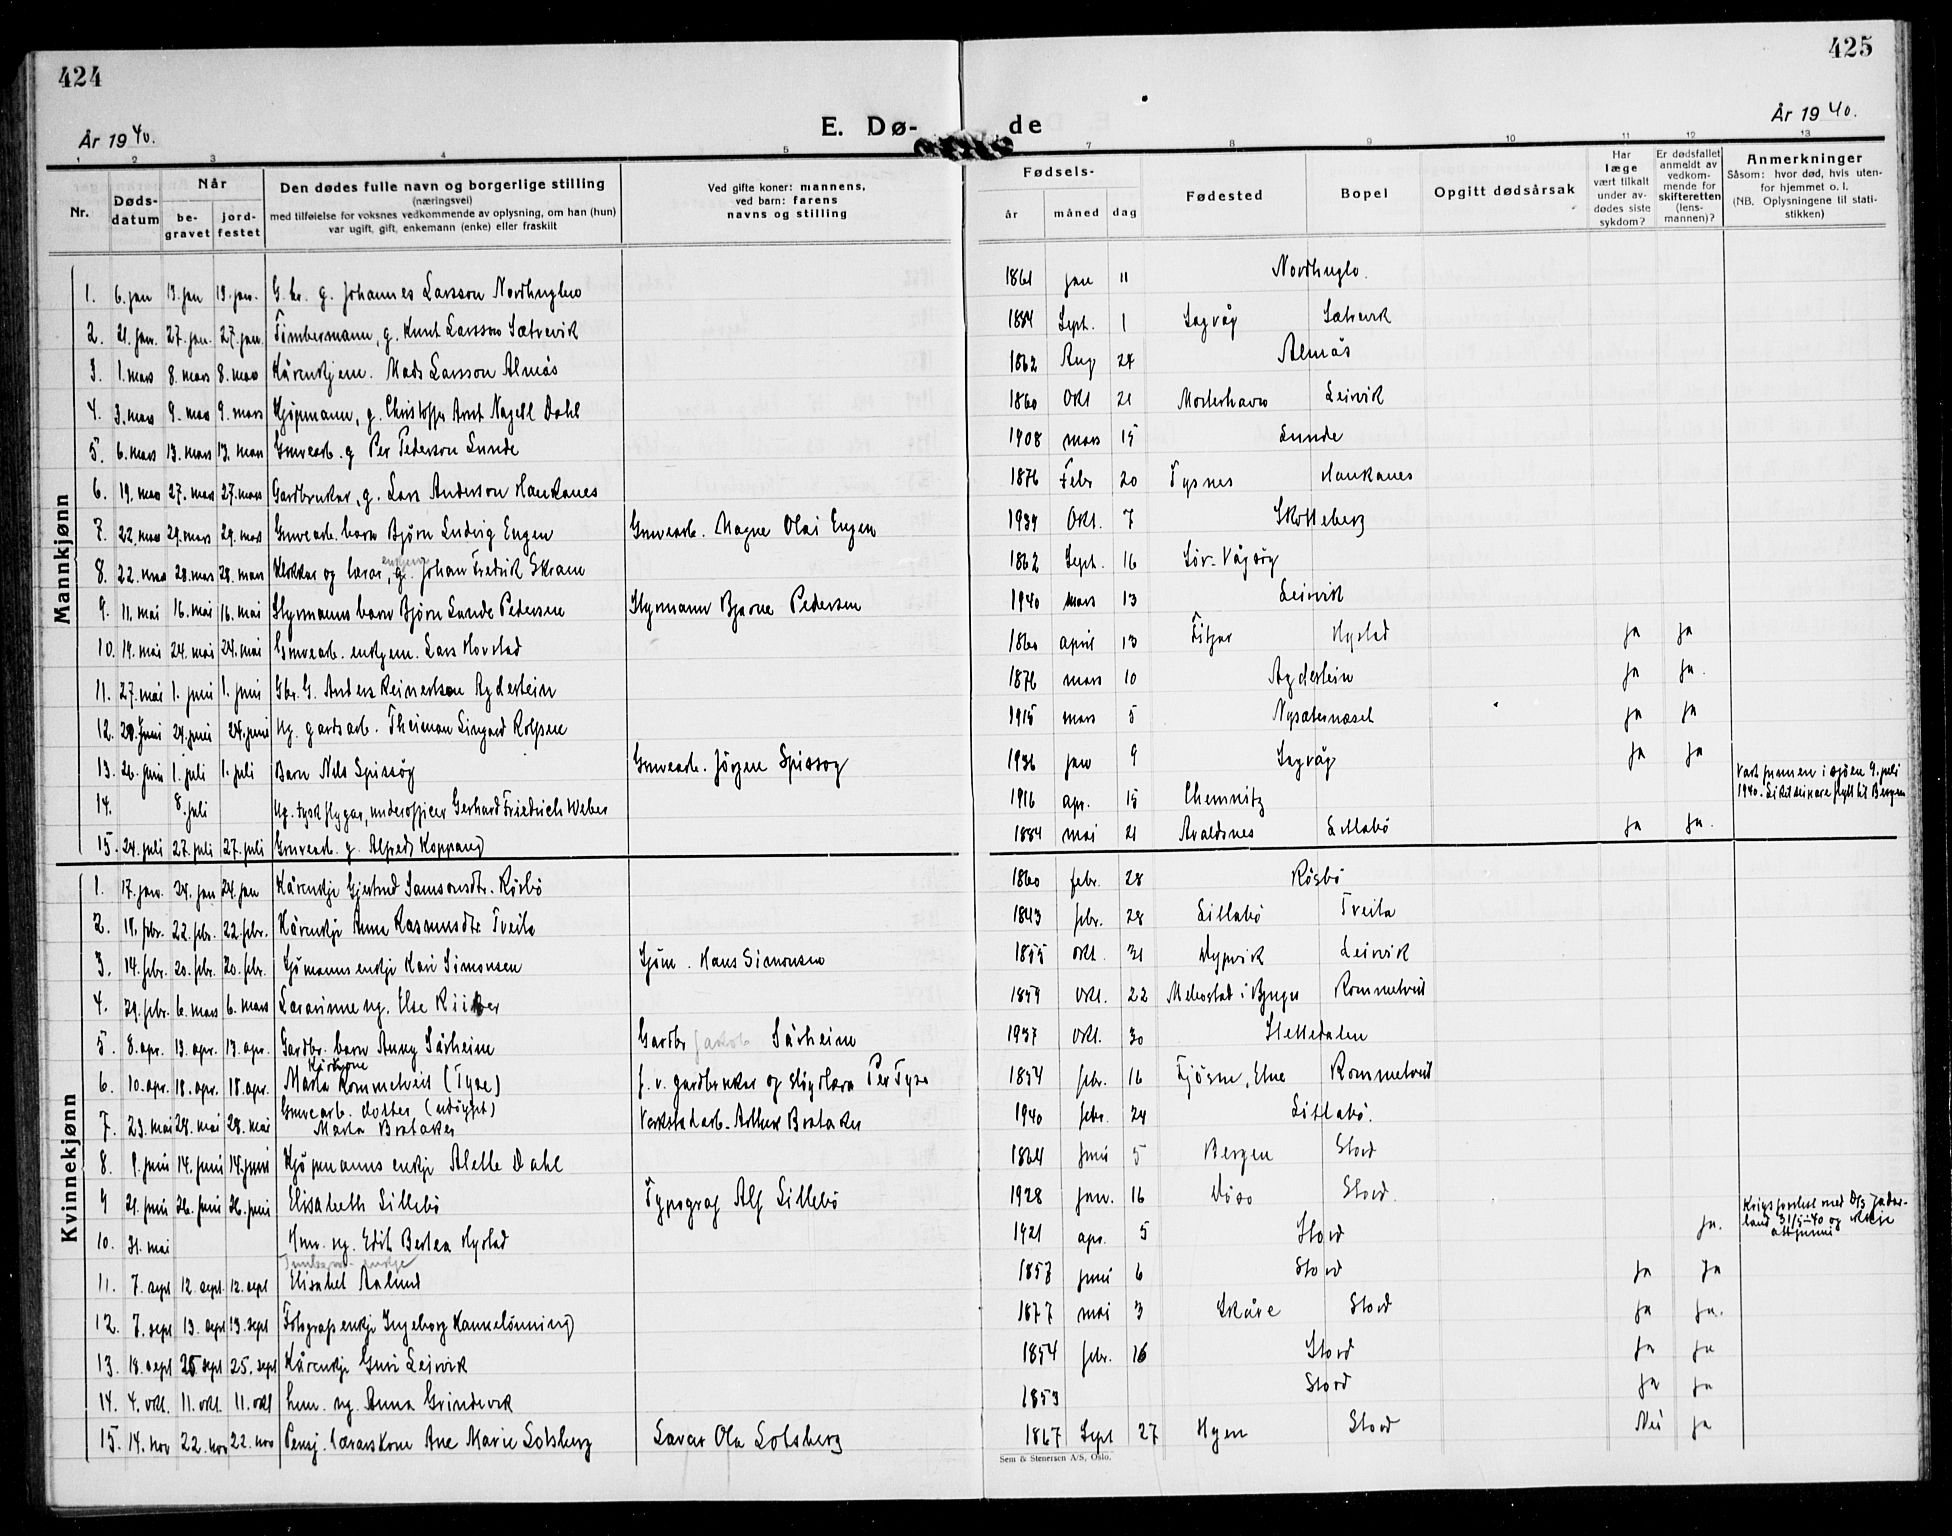 424
425
År 1940.
År 1940.
E. Dø-
de
1 2 3 4 5 7 8 9 10 11 12 13
Nr.
Døds-
datum
Når
be-
gravet
jord-
festet
Den dødes fulle navn og borgerlige stilling
(næringsvei)
med tilføielse for voksnes vedkommende av oplysning, om han (hun)
var ugift, gift, enkemann (enke) eller fraskilt
Ved gifte koner: mannens,
ved barn: farens
navns og stilling
Fødsels-
år måned dag
Fødested
Bopel
Opgitt dødsårsak
Har
læge
vært tilkalt
under av-
dødes siste
sykdom?
Er dødsfallet
anmeldt av
vedkom-
mende for
skifteretten
(lens-
mannen)?
Anmerkninger
Såsom: hvor død, hvis uten-
for hjemmet o. l.
(NB. Oplysningene til stati-
stikken)
Mannkjønn
1. 6. jan 13. jan 13. jan. G. br. g. Johannes Larsson Nordhuglo 1861 jan 11 Nordhuglo.
2. 21. jan. 27. jan. 27. jan. Tømbermann, g. Knut Larsson Sætrevik 1884 Sept. 1 Sagvåg Sætrevik
3. 1. mars 8. mars 8. mars Kårenkjem. Mads Larsson Almås 1862 Aug 24 Almås
4. 3. mars 9. mars 9. mars Kjøpmann, g. Christoffer Arnt Nagell Dahl 1860 Okt 21 Mosterhavn Leirvik
5. 6. mars 13. mars 13. mars Gruvearb. g Per Pederson Lunde 1908 mars 15 Lunde
6. 19. mars 27. mars 27. mars Gardbrukar, g. Lars Anderson Haukanes 1876 Febr 20 Tysnes Haukanes
7. 22. mars 29. mars 29. mars Gruvearb. barn Bjørn Ludvig Engen Gruvearb. Magne Olai Engen 1937 Okt. 7 Skotteberg
8. 22. mars 28. mars 28. mars Klokkar og lærar, enkjem g. Johan Fredrik Skram 1862 Sept. 16 Sør-Vågsøy
9. 11. mai 16. mai 16. mai Styrmanns barn Bjørn Lunde Pedersen Styrmann Bjarne Pedersen 1940 mars 13 Leirvik
10. 19. mai 24. mai 24. mai Gruvearb. enkjem. Lars Hovstad 1860 april 13 Fitjar Hystad ja ja
11. 27. mai 1. juni 1. juni Gbr. G. Anders Reinertson Agdestein 1876 mars 10 Agdestein ja ja.
12. 20. juni 24. juni 24. juni Ug. gardsarb. Theiman Lingard Rolfsne 1915 mars 5 Nysæternæset ja ja
13. 26. juni 1. juli 1. juli Barn Nils Spissøy Gruvearb. Jørgen Spissøy 1936 jan 9 Sagvåg ja ja
14. 8. juli Ug. tysk flygar, underofficer Gerhard Friedrich Weber 1916 apr. 15 Chemnitz Vart funnen i sjøen 9. juli
1940. Liket seinare flytt til Bergen
15. 24. juli 27. juli 27. juli Gruvearb. g. Alfred Koppang 1884 mai 21 Avaldsnes Litlabø ja ja.
Kvinnekjønn
1. 17. jan. 24. jan 24. jan Kårenkje Gjertrud Samsonsdtr. Røsbø 1860 febr. 28 Røsbø
2. 18. febr. 22. febr. 22. febr. Kårenkje Anna Rasmusdtr Tveita 1843 febr. 28 Litlabø Tveita
3. 14. febr. 20. febr. 20. febr. Sjømanns enkje Kari Simonsen Sjøm. Hans Simonsen 1855 okt. 31 Dypvik Leirvik
4. 29. febr. 6. mars 6. mars Lærarinne ug. Else Riiber 1859 okt. 22 Melsostad i Bjugn Rommetveit
5. 8. apr. 13. apr. 13. apr. Gardbr. barn Anny Sårheim Gardbr Jakob Sårheim 1937 okt. 30 Hettedalen
6. 10. apr. 18. apr. 18. apr. Kårkone
Marta Rommetveit (Tyse) f. v. gardbrukar og sløydlærar Per Tyse 1854 febr. 16 Fjøsne, Etne Rommetveit
7. 23. mai 28. mai 28. mai Gruvearb. dotter (udøypt)
Marta Brataker Verkstadarb. Arthur Brataker 1940 febr. 24 Litlabø.
8. 9. juni 14. juni 14. juni Kjøpmanns enkje Alette Dahl 1864 juni 5 Bergen Stord
9 21. juni 26. juni 26. juni Elisabeth Lillebø Typograf Alf Lillebø 1928 jan. 16 Voss Stord
10. 31. mai Hmr. ug. Edit Bertea Hystad 1921 apr. 5 Stord ja. Krigsforlist med D/S Jadar-
land 31/5-40 og ikkje
attfunnen
11. 7. sept 12. sept. 12. sept Tømberm. enkje
Elisabet Aalund 1857 juni 6 Stord ja ja
12. 7. sept 13. sept 13. sept Fotografenkje Ingeborg Haukelønning 1877 mai 3 Skåre Stord ja ja.
13. 18. sept 25 sept 25. sept Kårenkje Guri Leirvik 1854 febr. 16 Stord ja ja
14. 4. okt. 11. okt. 11. okt hum. ug. Anna Grindevik 1853 Stord ja ja
15. 14. nov 22. nov 22. nov Pensj. lærarskone Ane Marie Lotsberg Lærar Ola Lotsberg 1867 Sept 27 Hyen Stord Nei ja
Sem & Stenersen A/S, Oslo.